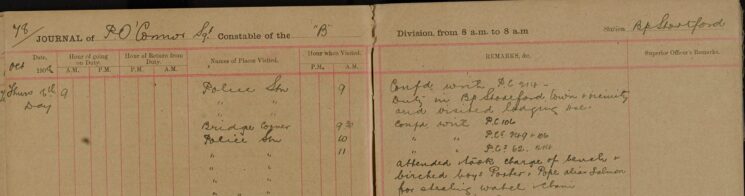 78
JOURNAL of P O'Connor Sgt Constable of the "B" Division, from 8 a.m. to 8 a.m. Station Bp Stortford
Date, Hour of going on Duty. Hour of Return from Duty. Names of Places Visited. Hour when Visited. REMARKS, &c. Superior Officer's Remarks.
Oct 190 A.M. P.M. A.M. P.M. P.M. A.M.
Thurs 9 Police Stn 9 Confd with P.C. 214
Day " " Duty in Bp Stortford Town & vicinity
" " and visited lodging Hse.
Bridge Corner 9 30 Confd with P.C 106
Police Stn 10 " " P.Cs 249 & 106
" " 11 " " P.Cs 62.
" " attended & took charge of bench &
" " birched boys Porter & Pope alias Salmon
" for stealing watch chain